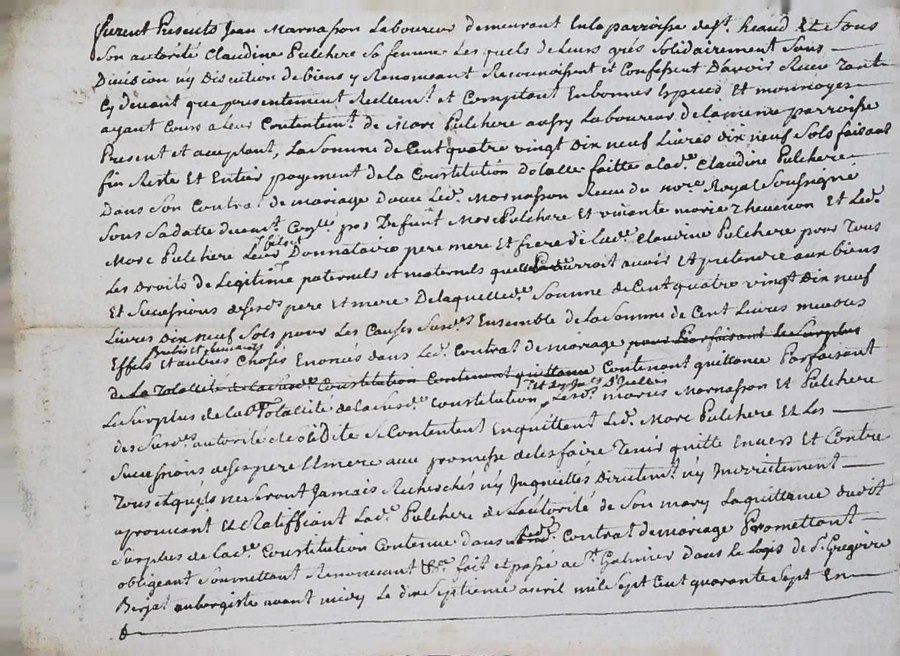 furent Presents Jean Marnasson Laboureur demeurant Enla parroisse de st. heaud Et Sous
Son autorité Claudine Pulchere Sa femme Les quels de Leurs grés Solidairement Sans
Division ny Discution de biens y Renonceant Reconnoissent et Confessent D'avoir Receu Tant
Cy devant que presentement Reellemt. et Comptant En bonnes Especes Et monnoyes
ayant Cours a Leur Contentemt. de Marc Pulchere aussy Laboureur de la meme parroisse
Present et acceptant, La Somme de Cent quatre vingt Dix neuf Livres dix neuf Sols faisant
fin Reste Et Entier payement de la Constitution dotalle faitte a lade. Claudine Pulchere
Dans Son Contrat de mariage avec Led. Marnasson Receu du nore. Royal Soussigné
Sous Sa datte par Defunt Marc Pulchere Et vivante marie Thevenon Et Led.
Marc Pulchere Leur Donnataire pere mere Et frere de lade. Claudine Pulchere pour Tous
Les Droits de Legitime paternels et maternels quelle Pourroit avoir Et pretendre aux biens
Et Successions de ses pere Et mere De laquelle de. Somme de Cent quatre vingt Dix neuf
Livres Dix neuf Sols pour Les Causes Susd. Ensemble de la Somme de Cent Livres meubles
Effets et autres Choses Enoncés dans Led. Contrat de mariage pour Parfaisant Le Surplus
de La Totallité de la susde. Constitution Contenant quittance Contenant quittance Parfaisant
Le Surplus de la Totalité de la susde. Constitution Lesd. mariés Marnasson Et Pulchere
des Susd. autorité et Solidité Se Contentent Enquittent Led. Marc Pulchere Et Les
Successions de ses pere Et mere avec promesse de les faire Tenir quitte Envers Et Contre
Tous Et quils ne Seront Jamais Recherchés ny Inquiettés Directemt. ny Indirectement
aprouvant Et Ratiffiant Lade. Pulchere de L'autorité de Son mary La quittance dudit
Surplus de lade. Constitution Contenue dans Led. Contrat de mariage Promettant
obligeant Soumettant Renonceant &ce. fait et passé a St. Galmier dans le Logis de Sr. Gregoire
Berjat aubergiste avant midy Le dix Septieme avril mil Sept Cent quarante Sept En